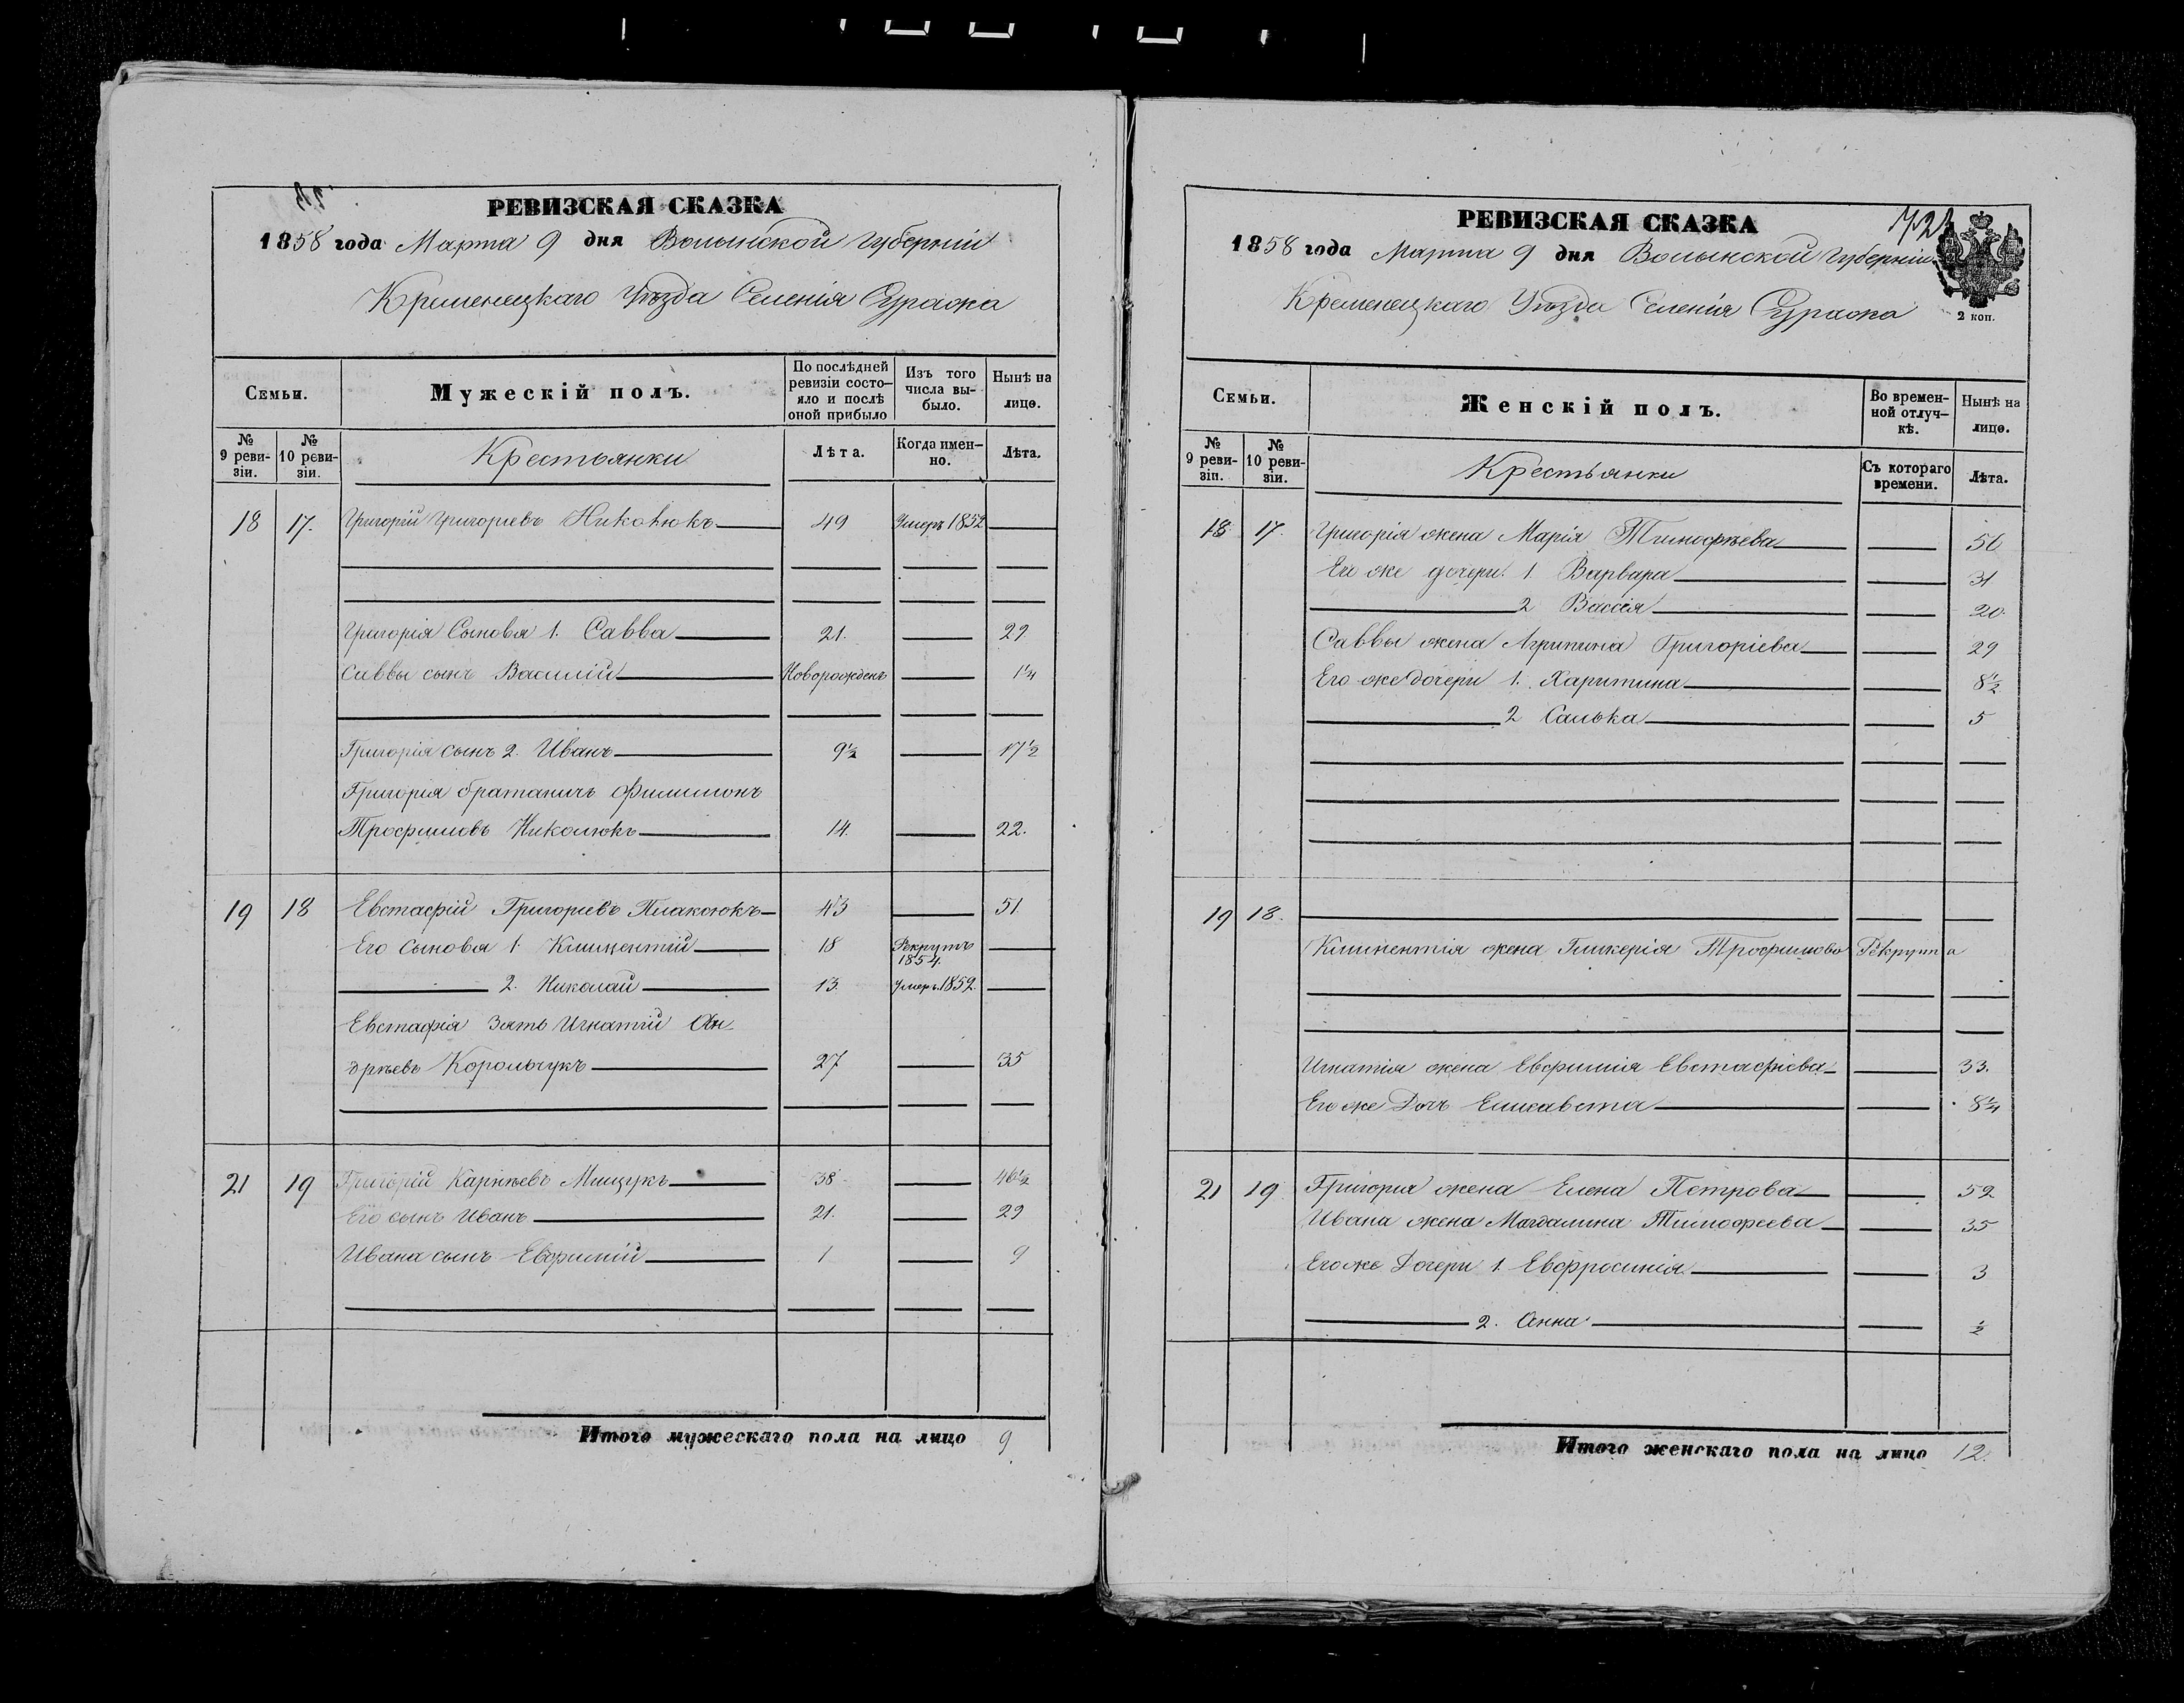 РЕВИЗСКАЯ СКАЗКА
1858 года Марта 9 дня Волынской Губерніи
Кременецкаго Уѣзда Селенія Суража
Семьи.
Мужескій полъ.
По послѣдней ревизіи состояло и послѣ оной прибыло
Изъ того числа выбыло.
Нынѣ на лицо.
№ 9 ревизіи.
№ 10 ревизіи.
Крестьянки
Лѣта.
Когда именно.
Лѣта.
18 17. Григорій Григорьевъ Николюкъ 49 Умеръ 1852
Григорія Сыновья 1. Савва 21. 29
Саввы сынъ Василій Новорожденъ 1¼
Григорія сынъ 2. Иванъ 9½ 17½
Григорія братаничъ Филимонъ
Трофимовъ Николюкъ 14. 22.
19 18 Евстафій Григорьевъ 43 51
Его Сыновья 1. Климентій 18 Рекрутъ 1854
2. Николай 13. Умеръ 1852.
Евстафія Зять Игнатій Ан
дреевъ Корольчукъ 27 35
21 19 Григорій Карнѣевъ Мищукъ 38 46½
Его сынъ Иванъ 21. 29
Ивана сынъ Евфимій 1 9
Итого мужескаго пола на лицо 9
РЕВИЗСКАЯ СКАЗКА
1858 года Марта 9 дня Волынской Губерніи
Кременецкаго Уѣзда Селенія Суража
2 коп.
Семьи.
Женскій полъ.
Во временной отлучкѣ.
Нынѣ на лицо.
№ 9 ревизіи.
№ 10 ревизіи.
Крестьянки
Съ котораго времени.
Лѣта.
18 17. Григорія жена Марія Тимофѣева 56
Его же дочери 1. Варвара 31
2 Вассія 20.
Саввы жена Агрипина Григоріева 29
Его же дочери 1. Харитина 8½
2 Салька 5
19 18.
Климентія жена Гликерія Трофимова Рекрутка
Игнатія жена Евфимія Евстафіева 33.
Его же Дочь Елисавета 8¼
21 19 Григорія жена Елена Петрова 52
Ивана жена Магдалина Тимофеева 35
Его же Дочери 1. Евфросинія 3
2. Анна ½
Итого женскаго пола на лицо 12.